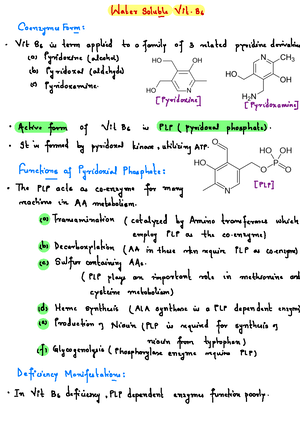 Water Soluble Vit. B6
Coenzyme Form:
• Vit B6 is term applied to a family of 3 related pyridine derivativ
(a) Pyridoxine (alcohol)
(b) Pyridoxal (aldehyde)
(c) Pyridoxamine.
HO
OH
HO
N
[Pyridoxine]
OH
CH3
HO
N
H2N
[Pyridoxamin]
• Active form of Vit B6 is PLP (pyridoxal phosphate).
• It is formed by pyridoxal kinase, utilizing ATP.
O
HO
N
O
P
O
OH
OH
[PLP]
Functions of Pyridoxial Phosphate:
• The PLP acts as coenzyme for many
reactions in AA metabolism.
(a) Transamination (catalyzed by Amino transferase which
employ PLP as the coenzyme)
(b) Decarboxylation (AA in these rxn require PLP as coenzym)
(c) Sulfur containing AAs.
(PLP plays an important role in methionine and
cysteine metabolism)
(d) Heme Synthesis (ALA synthase is a PLP dependent enzym)
(e) Production of Niacin (PLP is required for synthesis of
niacin from typtophan)
(f) Glycogenolysis (Phosphorylase enzyme require PLP)
Deficiency Manifestations:
• In Vit B6 deficiency, PLP dependent enzymes function poorly.